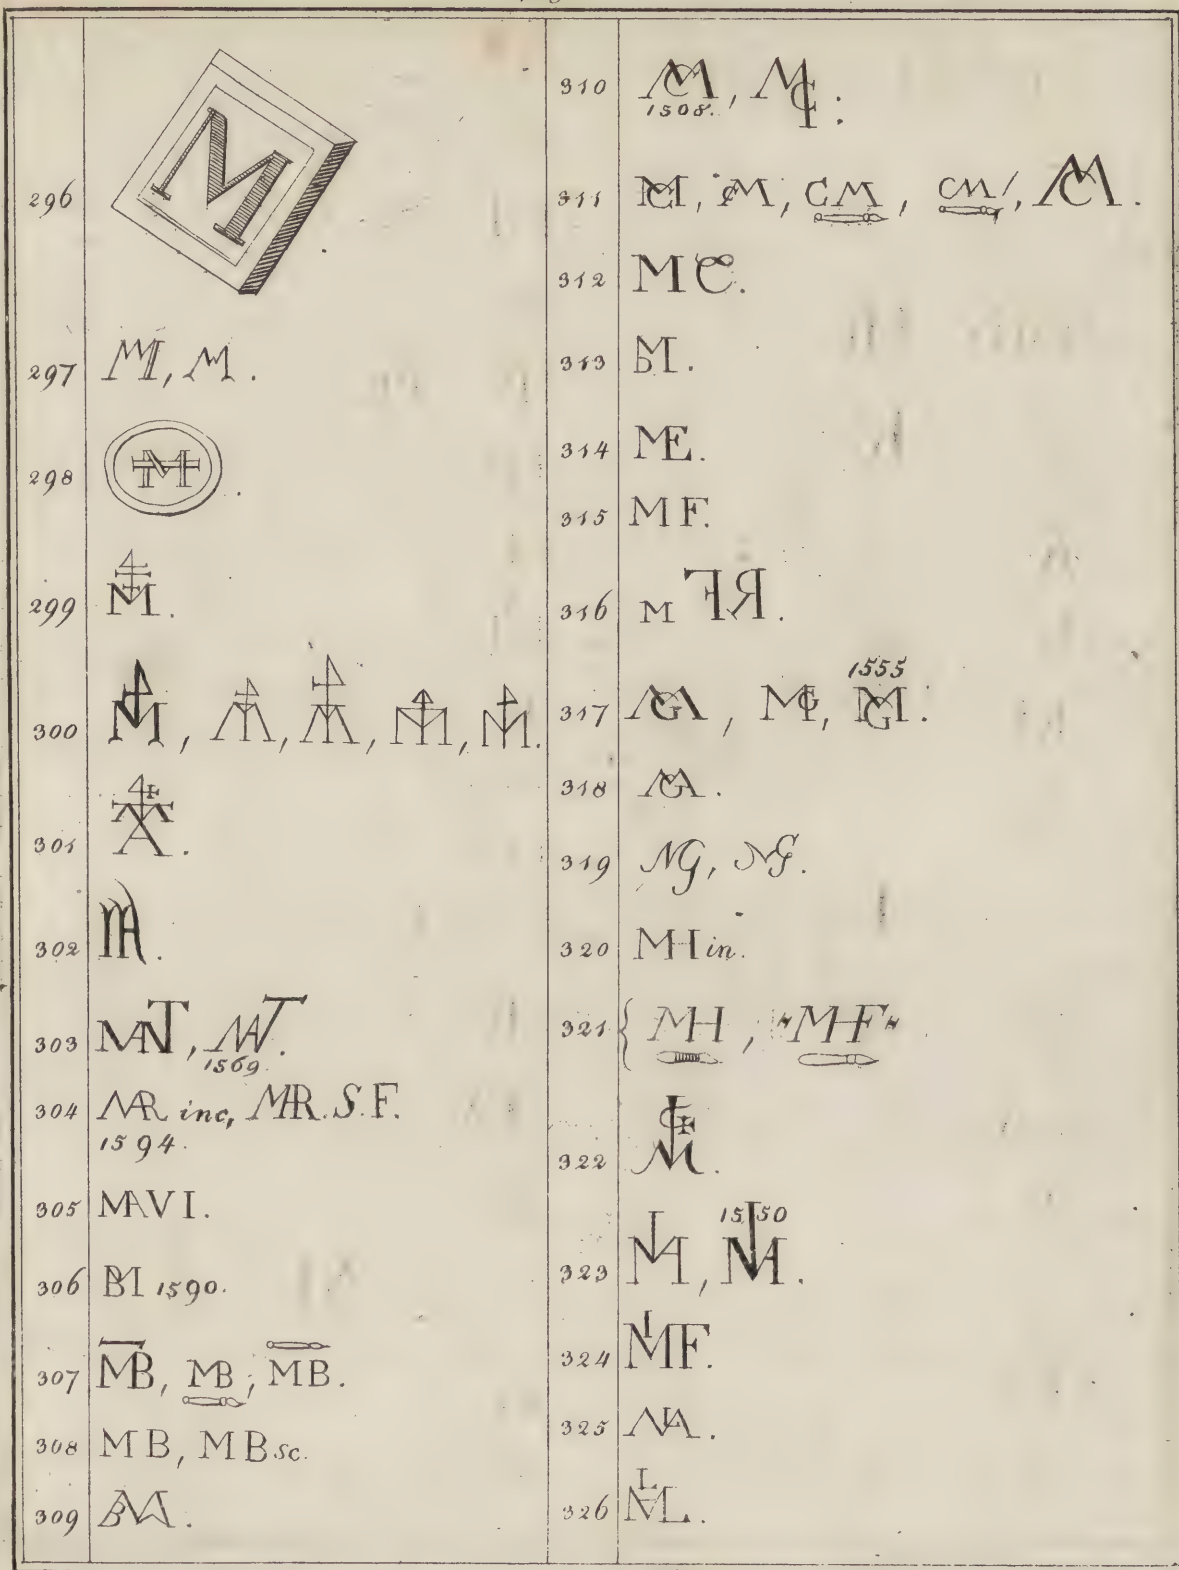 296 M
297 M, M.
298 M.
299 M.
300 M, M, M, M, M.
301
302 M.
303 MANT, MAT.
1569.
304 MR inc, MR. S. F.
1594.
305 MAVI.
306 BM 1590.
307 MB, MB, MB.
308 M B, M B sc.
309 BM.
310 CM, MC :
1508.
311 CM, CM, CM, CM, CM.
312 M C.
313 bM.
314 ME.
315 M F.
316 M FR.
1555
317 MG, MG, MG.
318 MG.
319 NG, NG.
320 MH in.
321 { MH, "MHF"
322
1550
323 IM, IM.
324 IMF.
325
326 L
ML.